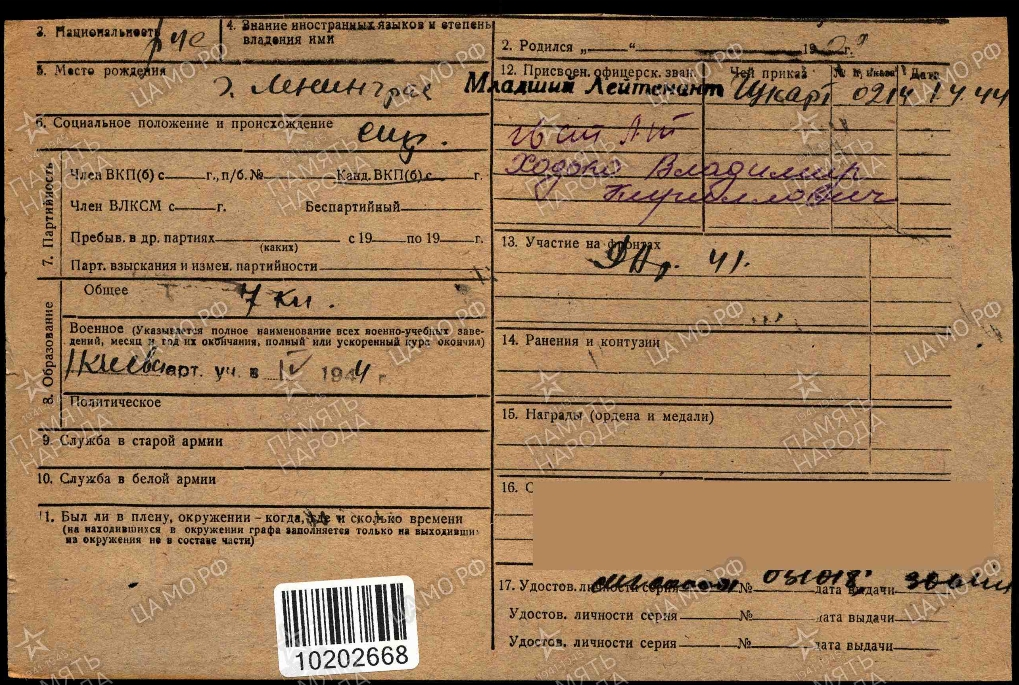 3. Национальность рус
4. Знание иностранных языков и степень
владения ими
5. Место рождения
г. Ленинград
6. Социальное положение и происхождение служ.
7. Партийность
Член ВКП(б) с г., п/б. № Канд. ВКП(б) с г.
Член ВЛКСМ с г. Беспартийный
Пребыв. в др. партиях с 19 по 19 г.
(каких)
Парт. взыскания и измен. партийности
8. Образование
Общее 7 кл.
Военное (Указывается полное наименование всех военно-учебных заве-
дений, месяц и год их окончания, полный или ускоренный курс окончил)
арт. уч. в IV 1944 г
Политическое
9. Служба в старой армии
10. Служба в белой армии
11. Был ли в плену, окружении – когда, где и сколько времени
(на находившихся в окружении графа заполняется только на выходивших
из окружения не в составе части)
10202668
2. Родился „ “ 19 г.
12. Присвоен. офицерск. зван. Чей приказ № приказа Дата
Младший Лейтенант 0214 1.4.44
Владимир
Кириллович
13. Участие на фронтах
41.
14. Ранения и контузии
15. Награды (ордена и медали)
16. С
17. Удостов. личности серия № дата выдачи
Удостов. личности серия № дата выдачи
Удостов. личности серия № дата выдачи
ЦА МО РФ
ПАМЯТЬ
НАРОДА